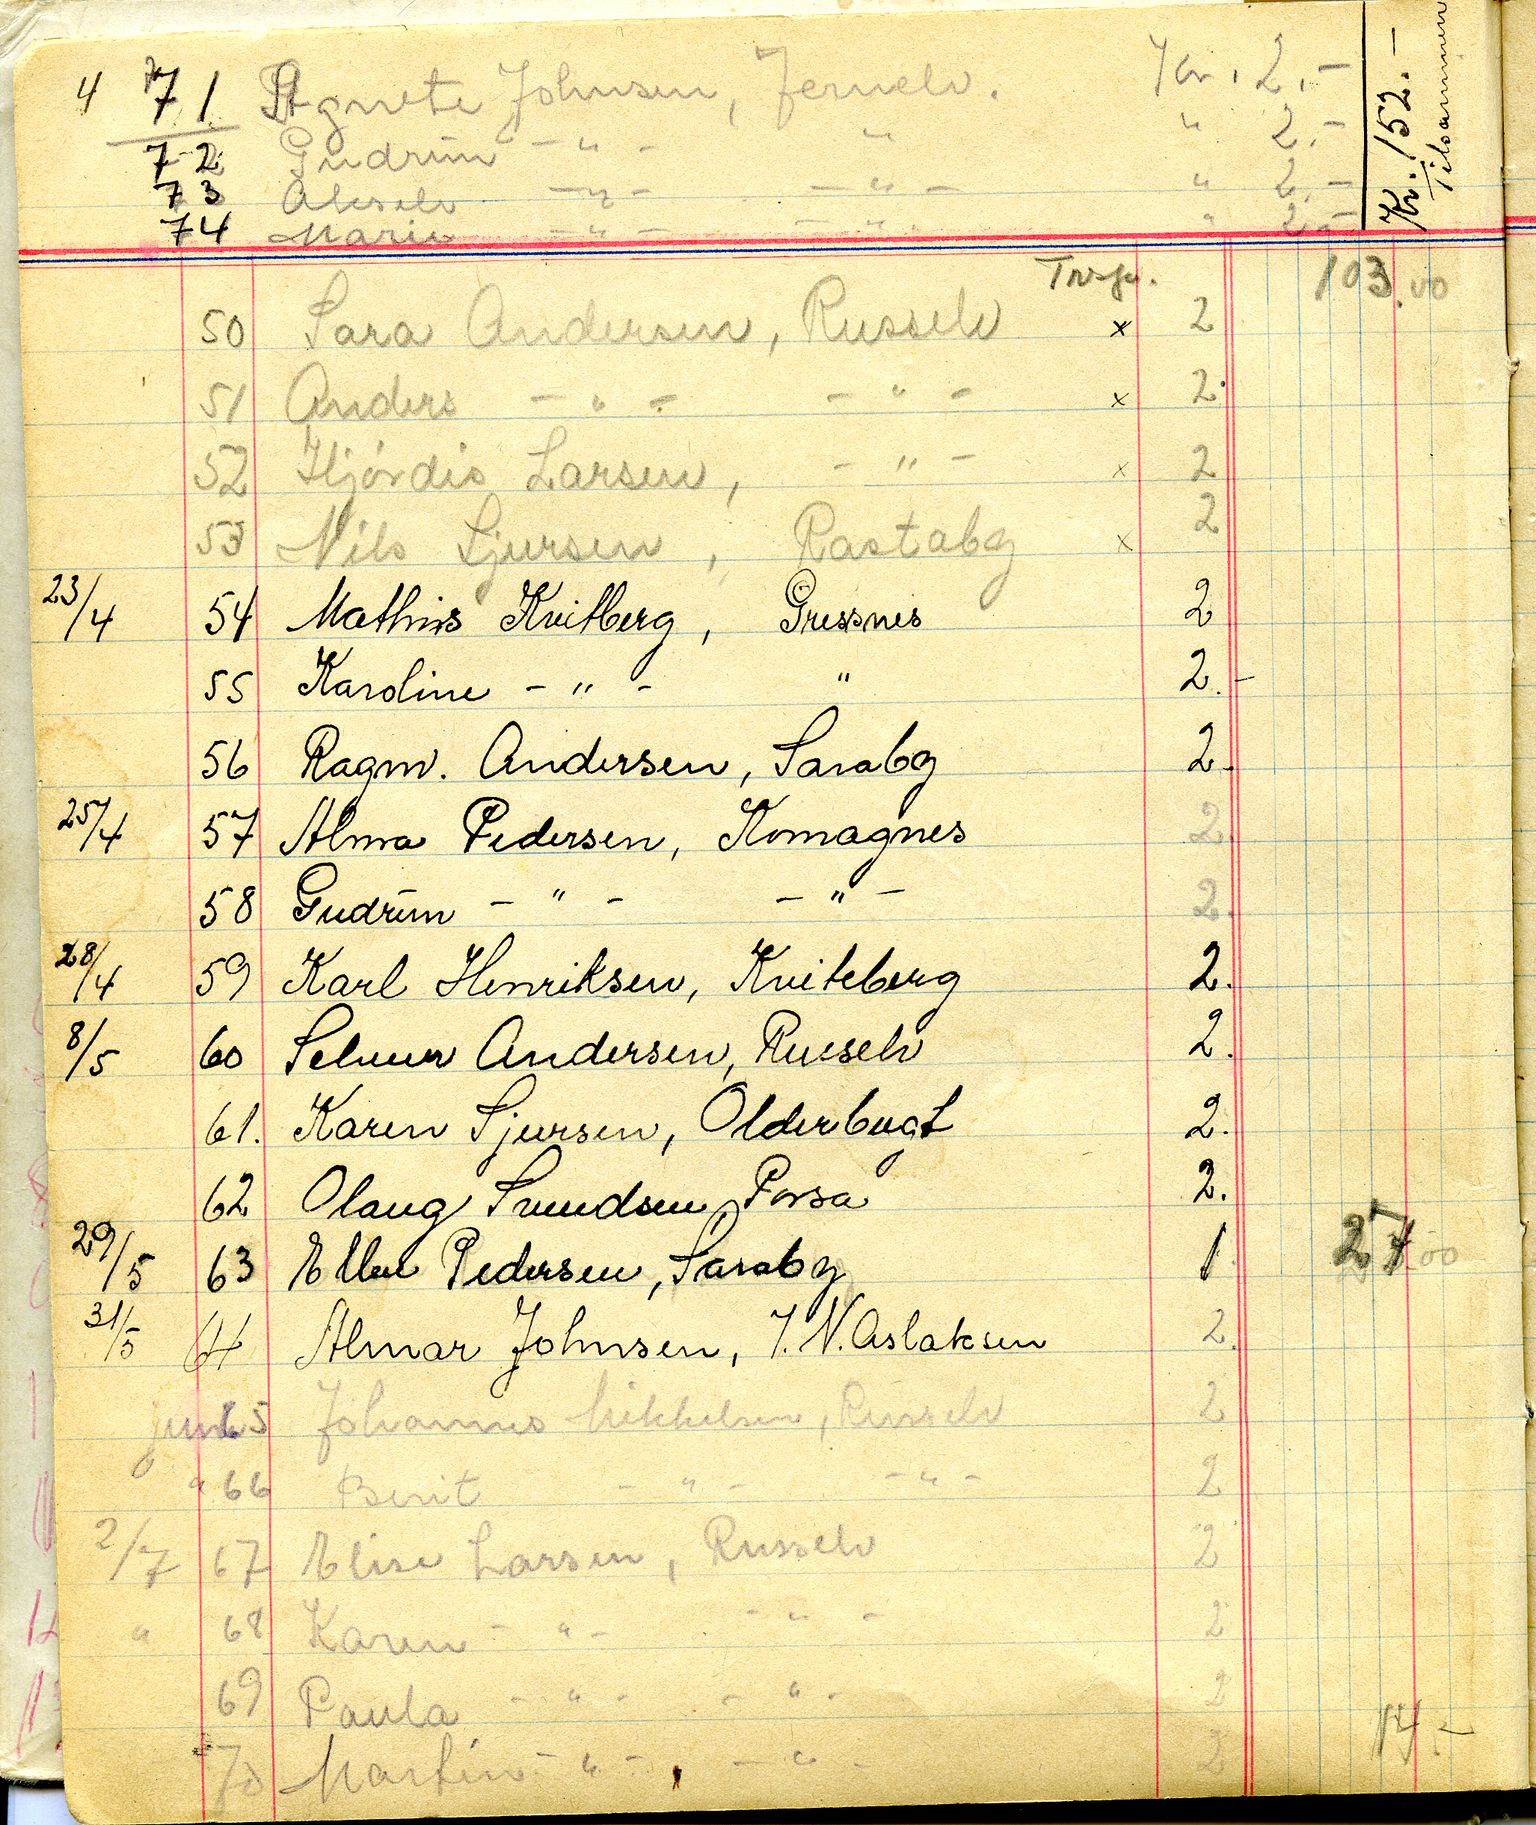 4 71 Agnete Johnsen, Jernelv. Kr. 2.-
72 Gudrun - " - " " 2.-
73 Aksel - " - - " - " 2.-
74 Marie - " - - " - " 2.-
Kr. 152.-
Tilsammen
103.00
50 Sara Andersen, Russelv x 2
51 Anders - " - - " - x 2
52 Hjórdis Larsen, - " - x 2
53 Nils Sjursen, Rastabg x 2
23/4 54 Mathis Kvitberg, Gressnes 2
55 Karoline - " - " 2.-
56 Ragnv. Andersen, Sarabg 2.
25/4 57 Alma Pedersen, Komagnes 2.
58 Gudrun - " - - " - 2.
28/4 59 Karl Henriksen, Kviteberg 2.
8/5 60 Andersen, Russelv 2.
61. Karen Sjursen, Olderbugt 2.
62 Olaug Svendsen, Porsa 2.
29/5 63 Ellen Pedersen, Sarabg 1 27.00
31/5 64 Almar Johnsen, J. N. Aslaksen 2.
juni 65 Johannes Mikkelsen, Russelv 2
" 66 Berit - " - - " - 2
2/7 67 Elise Larsen, Russelv 2
" 68 Karen - " - - " - 2
69 Paula - " - - " - 2
70 Martin - " - - " - 2 14.-